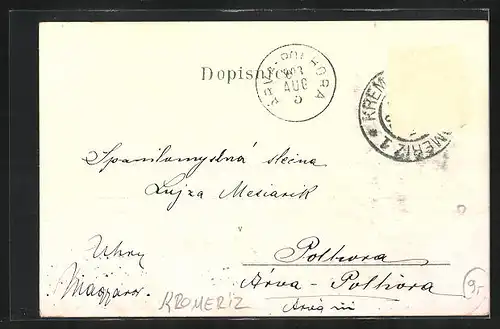 Dopisnice
ÁRVA-POLHORA
903
AUG
5
KREM
MĚŘÍŽ 1
Spanilomyslná slečna
Lujza Mesiarik
Uhry
Magyaror.
Polhora
Árva - Polhora
KROMERIZ
9,-